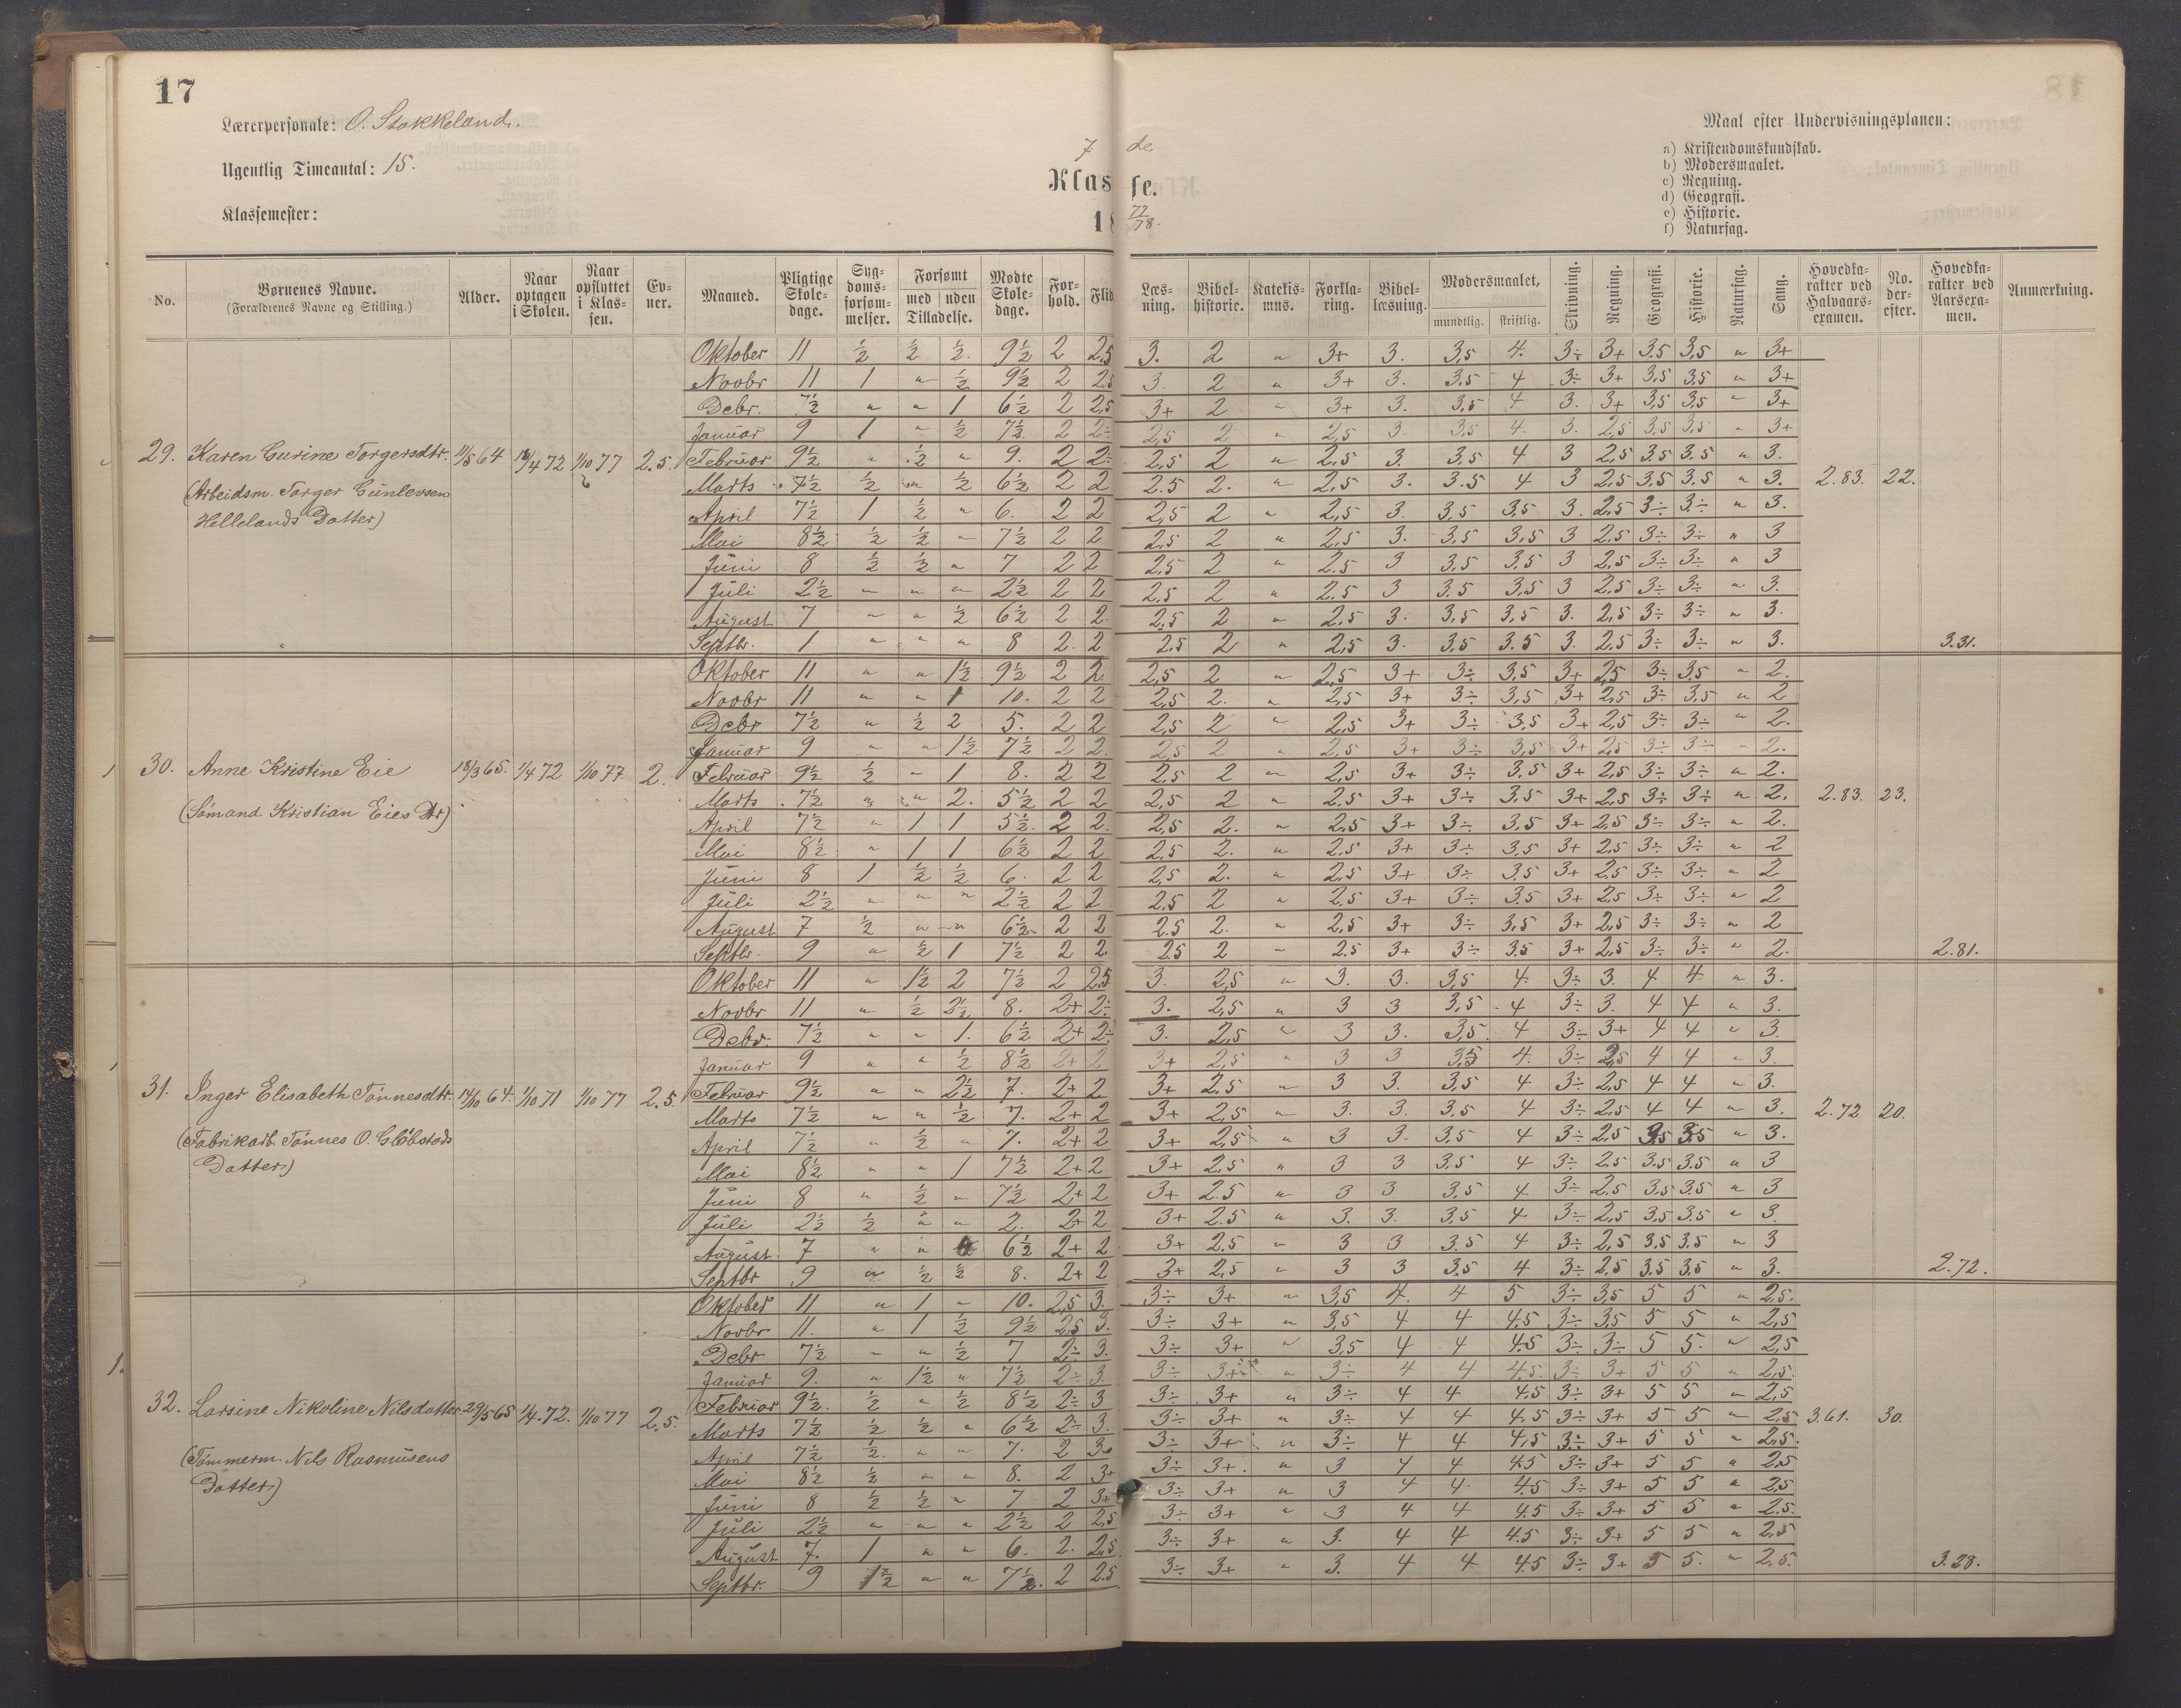 17
Lærerpersonale: O. Stokkeland.
Ugentlig Timeantal: 15.
Klassemester:
7de
Klasse.
1877/78.
Maal efter Undervisningsplanen:
a) Kristendomskundskab.
b) Modersmaalet.
c) Regning.
d) Geografi.
e) Historie.
f) Naturfag.
No. | Børnenes Navne. (Forældrenes Navne og Stilling.) | Alder. | Naar optagen i Skolen. | Naar opflyttet i Klassen. | Evner. | Maaned. | Pligtige Skoledage. | Sygdomsforsømmelser. | Forsømt med / uden Tilladelse. | Mødte Skoledage. | Forhold. | Flid | Læsning. | Bibelhistorie. | Katekismus. | Forklaring. | Bibellæsning. | Modersmaalet, mundtlig. | skriftlig. | Skrivning. | Regning. | Geografi. | Historie. | Naturfag. | Sang. | Hovedkarakter ved Halvaarsexamen. | No. derefter. | Hovedkarakter ved Aarsexamen. | Anmærkning.
29. Karen Gurine Torgersdtr. 11/5 64 18/4 72 1/10 77 2.5.
(Arbeidsm. Torger Gunlevsen
Hellelands Datter)
Oktober 11 ½ ½ ½. 9½ 2 2,5 3. 2 " 3+ 3. 3,5 4. 3÷ 3+ 3.5 3,5 " 3+
Novbr 11 1 " ½ 9½ 2 2,5 3. 2 " 3+ 3. 3,5 4 3÷ 3+ 3,5 3,5 " 3+
Debr. 7½ " " 1 6½ 2 2,5 3+ 2 " 3+ 3. 3,5 4 3. 3+ 3,5 3,5 " 3+
Januar 9 1 " ½ 7½ 2 2÷ 2,5 2 " 2,5 3. 3,5 4. 3. 2,5 3,5 3.5 " 3+
Februar 9½ " ½ " 9. 2 2÷ 2,5 2 " 2,5 3. 3,5 4 3 2,5 3.5 3.5 " 3.
Marts 7½ ½ " ½ 6½ 2 2 2.5 2. " 2,5 3. 3.5 4 3 2,5 3,5 3.5 " 3. 2.83. 22.
April 7½ 1 ½ " 6. 2 2 2,5 2 " 2,5 3. 3,5 3,5 3. 2,5 3÷ 3÷ " 3.
Mai 8½ ½ ½ " 7½ 2 2 2,5 2 " 2,5 3. 3,5 3,5 3 2,5 3÷ 3÷ " 3
Juni 8 ½ ½ " 7 2 2 2,5 2 " 2.5 3 3,5 3.5 3 2,5 3÷ 3÷ " 3
Juli 2½ " " " 2½ 2 2 2,5 2 " 2.5 3 3.5 3,5 3 2,5 3÷ 3÷ " 3.
August 7 " " ½ 6½ 2 2. 2,5 2 " 2,5 3. 3,5 3,5 3. 2,5 3÷ 3÷ " 3.
Septbr. 1 " " " 8 2. 2 2.5 2 " 2,5 3. 3,5 3.5 3. 2,5 3÷ 3÷ " 3. 3.31.
30. Anne Kristine Eie 18/3 65. 1/4 72 1/10 77. 2.
(Sømand Kristian Eies Dtr)
Oktober 11 " " 1½ 9½ 2 2 2,5 2 " 2,5 3+ 3÷ 3,5 3+ 2,5 3÷ 3,5 " 2.
Novbr 11 " " 1 10. 2 2 2,5 2. " 2,5 3+ 3÷ 3,5 3+ 2,5 3÷ 3,5 " 2
Debr 7½ " ½ 2 5. 2 2 2,5 2 " 2,5 3+ 3÷ 3.5 3+ 2,5 3÷ 3÷ " 2.
Januar 9 " " 1½ 7½ 2 2. 2,5 2 " 2,5 3+ 3÷ 3,5 3+ 2,5 3÷ 3÷ " 2.
Februar 9½ ½ " 1 8. 2 2 2,5 2 " 2,5 3+ 3÷ 3.5 3+ 2,5 3÷ 3÷ " 2.
Marts 7½ " " 2. 5½ 2 2 2,5 2 " 2.5 3+ 3÷ 3,5 3+ 2,5 3÷ 3÷ " 2. 2.83. 23.
April 7½ " 1 1 5½. 2 2. 2,5 2. " 2.5 3+ 3÷ 3,5 3+ 2,5 3÷ 3÷ " 2.
Mai 8½ " 1 1 6½ 2 2 2,5 2. " 2.5 3+ 3÷ 3,5 3+ 2,5 3÷ 3÷ " 2
Juni 8 1 ½ ½ 6. 2 2 2,5 2. " 2,5 3+ 3÷ 3.5 3+ 2,5 3÷ 3÷ " 2
Juli 2½ " " " 2½ 2 2 2,5 2 " 2,5 3+ 3÷ 3.5 3+ 2,5 3÷ 3÷ " 2
August 7 ½ " " 6½ 2 2 2.5 2. " 2,5 3+ 3÷ 3,5 3+ 2,5 3÷ 3÷ " 2
Septbr. 9 " ½ 1 7½ 2 2. 2.5 2 " 2.5 3+ 3÷ 3.5 3+ 2,5 3÷ 3÷ " 2. 2.81.
31. Inger Elisabeth Tønnesdtr. 14/10 64. 1/10 71 1/10 77 2.5.
(Fabrikarb. Tønnes O. Gløbstads
Datter)
Oktober 11 " 1½ 2 7½ 2 2.5 3. 2,5 " 3. 3. 3,5 4. 3÷ 3. 4 4 " 3.
Novbr 11 " ½ 2½ 8. 2+ 2÷ 3. 2,5 " 3 3 3,5 4 3÷ 3. 4 4 " 3.
Debr. 7½ " " 1. 6½ 2+ 2÷ 3. 2,5 " 3 3. 3,5 4 3÷ 3+ 4 4 " 3
Januar 9 " " ½ 8½ 2+ 2 3+ 2,5 " 3 3 3,5 4. 3÷ 2,5 4 4 " 3.
Februar 9½ " " 2½ 7. 2+ 2 3+ 2,5 " 3 3. 3,5 4 3÷ 2,5 4 4 " 3.
Marts 7½ " " ½ 7. 2+ 2 3+ 2,5 " 3. 3. 3,5 4 3÷ 2,5 4 4 " 3. 2.72 20.
April 7½ " ½ " 7. 2+ 2 3+ 2,5 " 3 3. 3,5 4 3÷ 2,5 3,5 3.5 " 3.
Mai 8½ " " 1 7½ 2+ 2 3+ 2,5 " 3 3 3,5 4 3÷ 2,5 3.5 3.5 " 3
Juni 8 " ½ " 7½ 2+ 2 3+ 2.5 " 3 3 3,5 4 3÷ 2.5 3,5 3.5 " 3
Juli 2½ ½ " " 2. 2+ 2 3+ 2.5 " 3. 3. 3,5 4 3÷ 2,5 3,5 3.5 " 3.
August 7 " " 6½ 2+ 2 3+ 2.5 " 3 3 3.5 4 3÷ 2,5 3,5 3.5 " 3
Septbr 9 " ½ ½ 8. 2+ 2 3+ 2,5 " 3 3 3,5 4 3÷ 2.5 3.5 3,5 " 3. 2.72.
32. Larsine Nikoline Nilsdatter 29/5 65 1/4 72. 1/10 77 2.5.
(Tømmerm. Nils Rasmusens
Datter)
Oktober 11 " 1 " 10. 2,5 3. 3÷ 3+ " 3,5 4. 4 5 3÷ 3,5 5 5 " 2,5.
Novbr 11. " 1 ½ 9½ 2,5 3. 3÷ 3+ " 3,5 4 4 4,5 3÷ 3,5 5 5 " 2,5
Debr 7½ " " ½ 7 2÷ 3. 3÷ 3+ " 3,5 4 4 4.5 3÷ 3÷ 5 5. " 2,5
Januar 9. " 1½ " 7½ 2÷ 3. 3÷ 3+ " 3÷ 4 4 4,5. 3÷ 3+ 5 5 " 2,5.
Februar 9½. ½ " ½ 8½ 2÷ 3 3÷ 3+ " 3÷ 4 4 4.5 3÷ 3+ 5 5 " 2,5
Marts 7½ ½ ½ " 6½ 2÷ 3. 3÷ 3+ " 3÷ 4 4 4.5 3÷ 3+ 5 5 " 2,5 3.61. 30.
April 7½ ½. " " 7. 2 3. 3÷ 3+ " 3÷ 4 4 4,5 3÷ 3+ 5 5 " 2,5.
Mai 8½ ½ " " 8. 2 3+ 3÷ 3+. " 3 4 4 4.5 3÷ 3+ 5 5 " 2,5
Juni 8 ½ ½ " 7 2 3+ 3÷ 3+ " 3 4 4 4.5 3÷ 3+ 5 5 " 2,5
Juli 2½ " " " 2½ 2 2,5 3÷ 3+ " 3 4 4 4.5 3÷ 3+ 5 5 " 2.5.
August 7. 1 " " 6. 2. 2,5 3÷ 3+ " 3. 4 4 4.5 3÷ 3+ 5 5 " 2,5
Septbr. 9 1½ " " 7½. 2 2.5 3÷ 3+ " 3. 4 4 4.5 3÷ 3+ 5 5. " 2,5. 3.28.